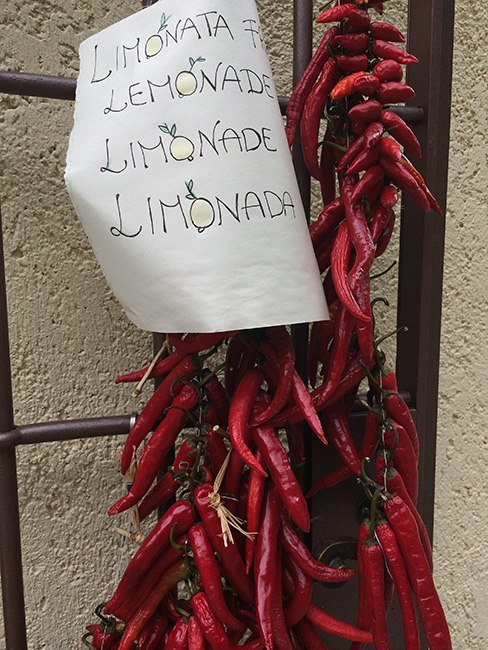 LIMONATA
LEMONADE
LIMONADE
LIMONADA